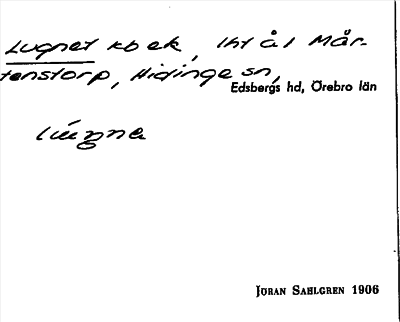 Lugnet kb ek, lht å l Mår-
tenstorp, Hidinge sn,
Edsbergs hd, Örebro län
JÖRAN SAHLGREN 1906